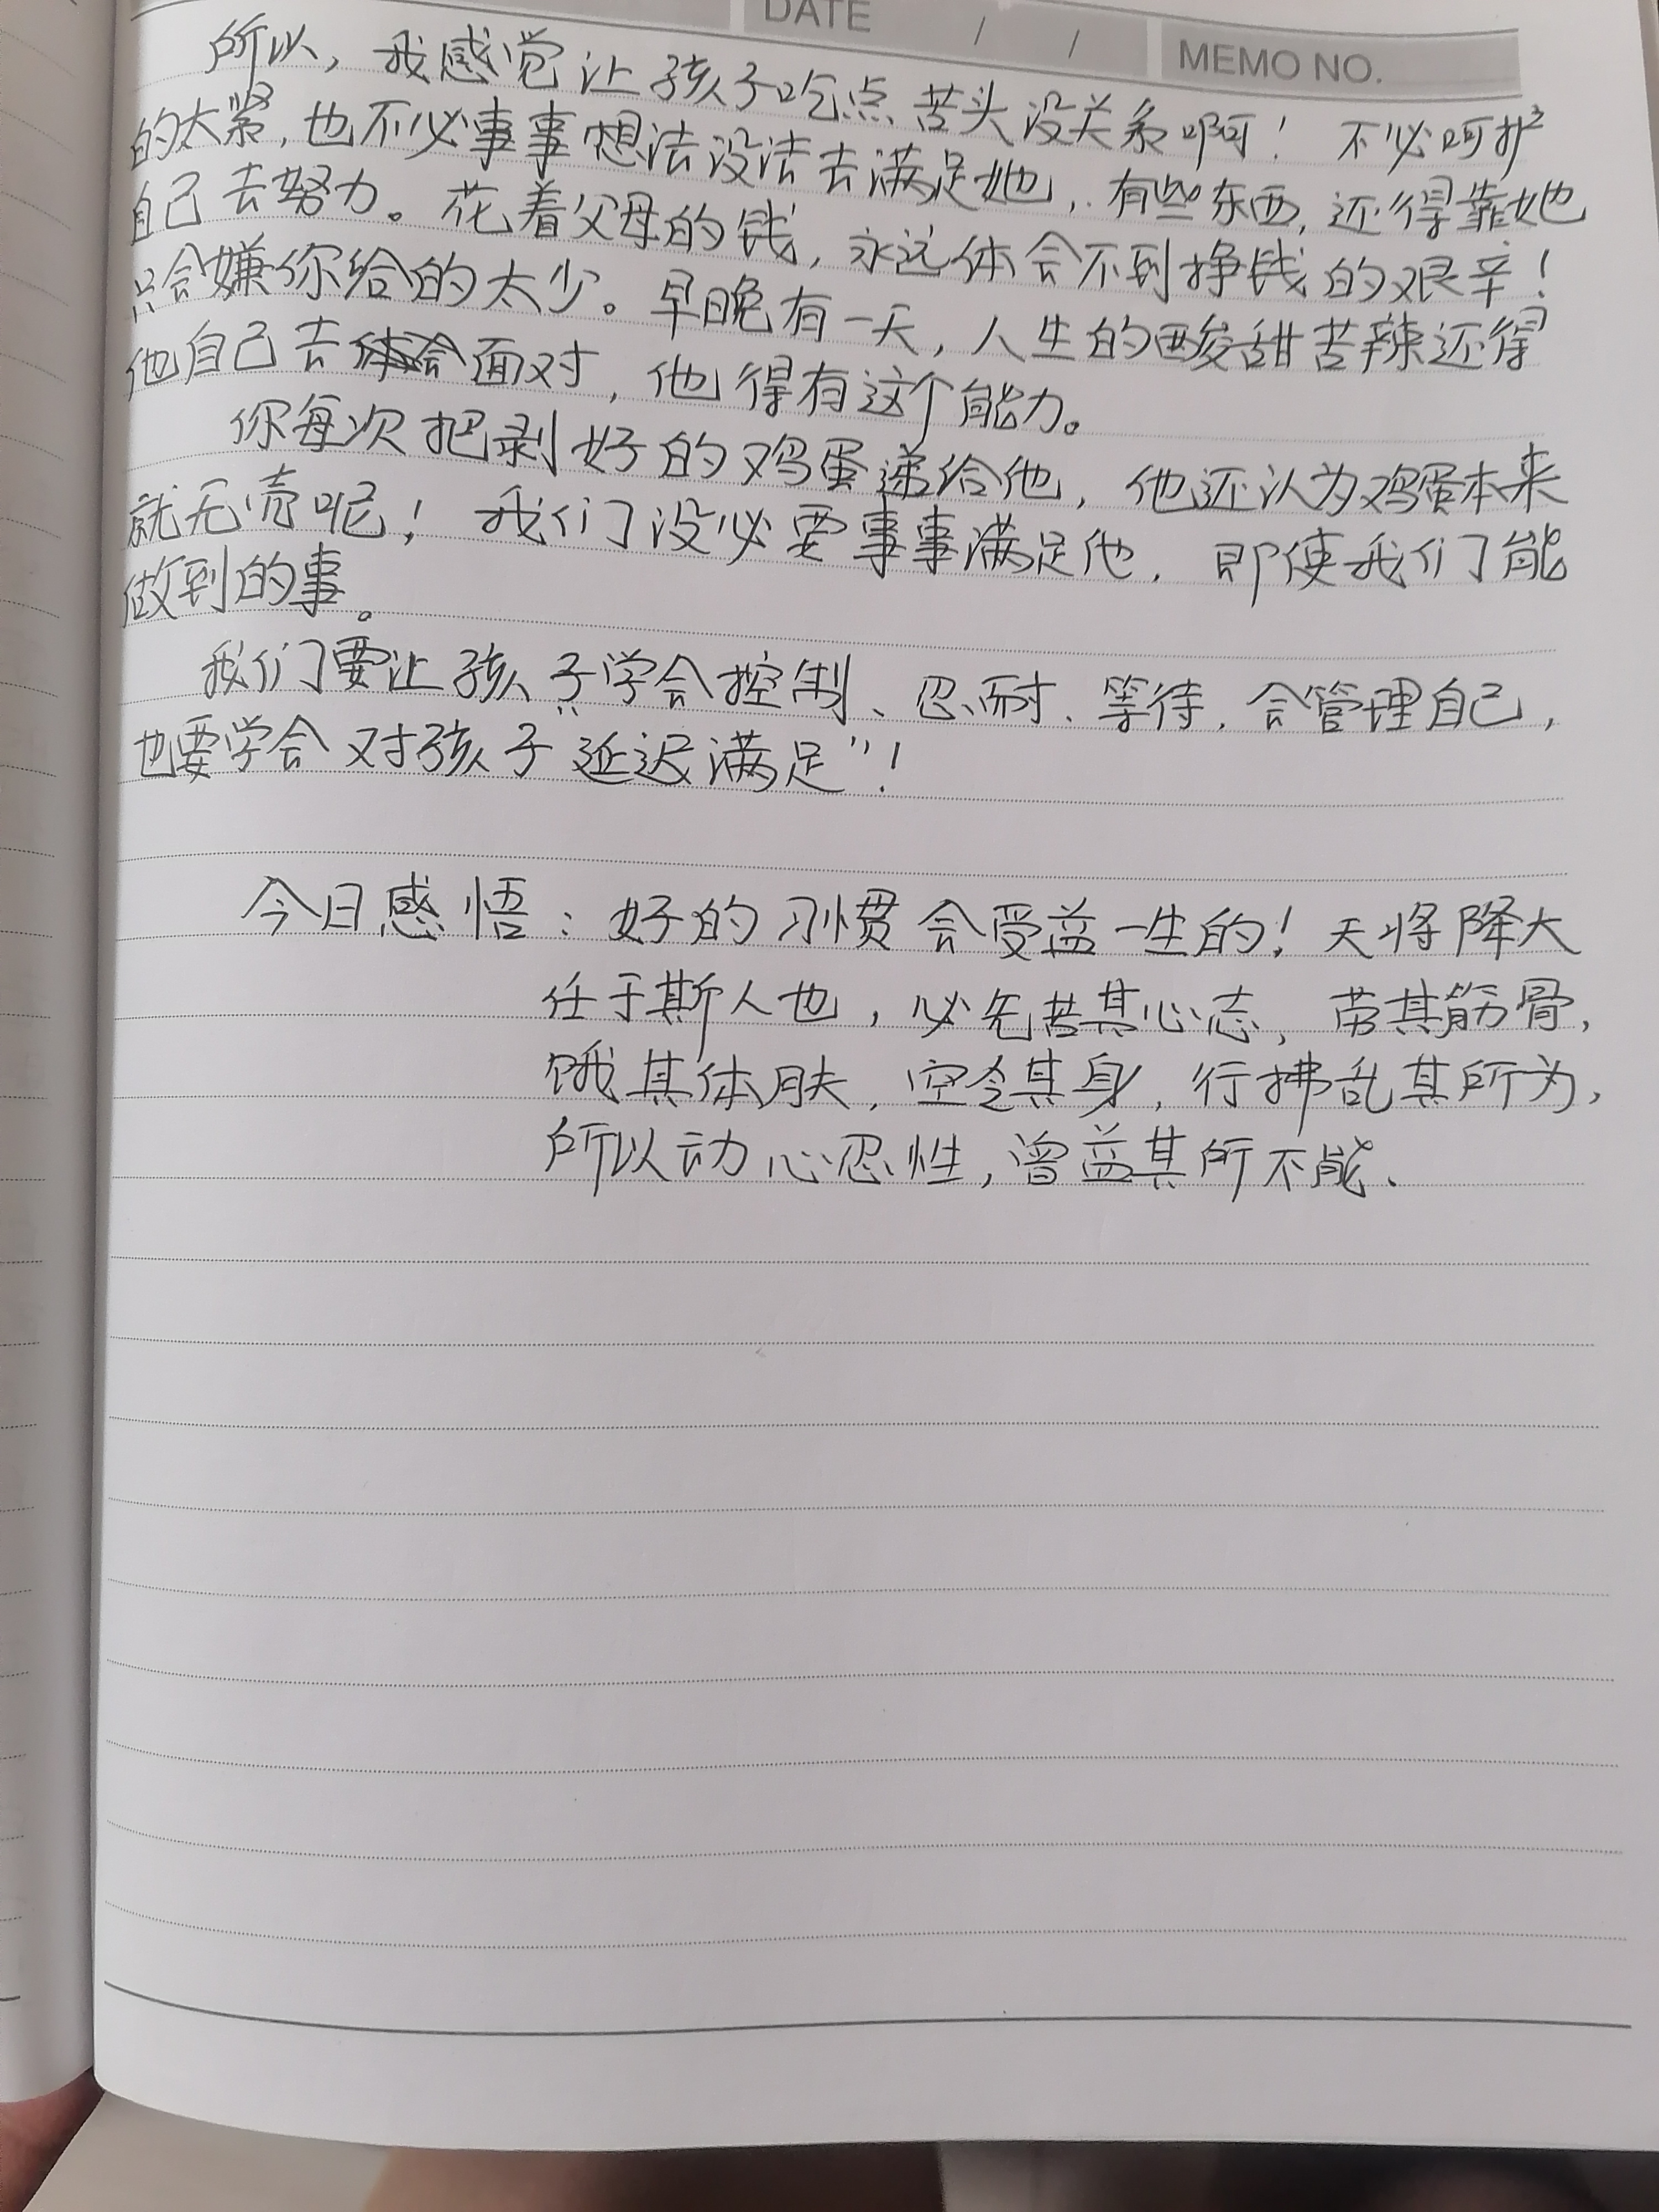 DATE / /
MEMO NO.
所以，我感觉让孩子吃点苦头没关系啊！不必呵护
的太紧，也不必事事想法没法去满足她，有些东西，还得靠她
自己去努力。花着父母的钱，永远体会不到挣钱的艰辛！
只会嫌你给的太少。早晚有一天，人生的酸甜苦辣还得
他自己去面对，他得有这个能力。
你每次把剥好的鸡蛋递给他，他还认为鸡蛋本来
就无壳呢！我们没必要事事满足他，即使我们能
做到的事。
我们要让孩子学会控制、忍耐、等待，会管理自己，
也要学会对孩子“延迟满足”！
今日感悟：好的习惯会受益一生的！天将降大
任于斯人也，必先苦其心志，劳其筋骨，
饿其体肤，空乏其身，行拂乱其所为，
所以动心忍性，曾益其所不能、